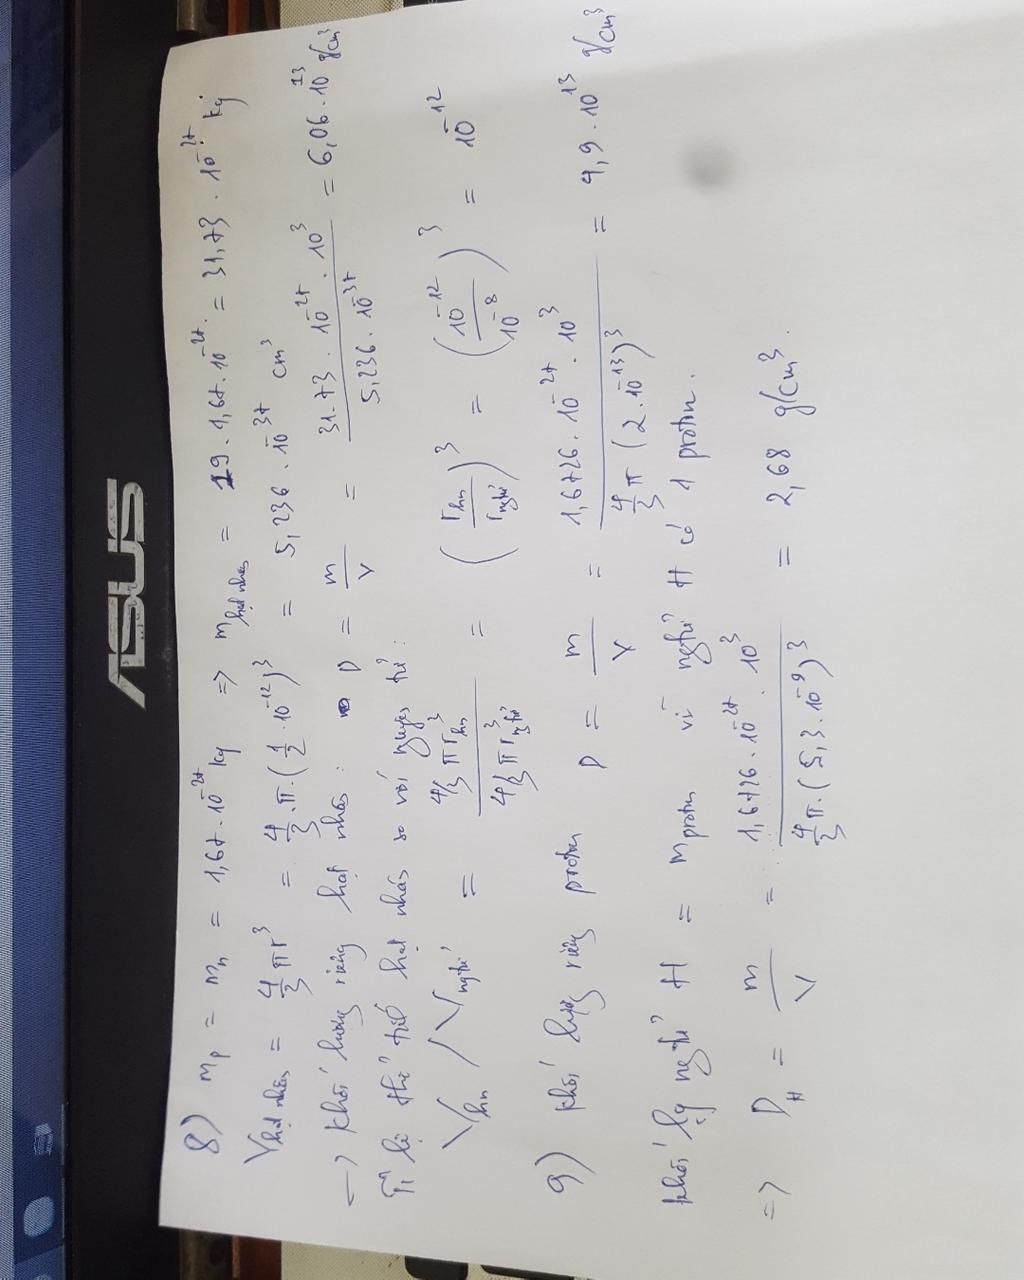 ASUS
8) mp = mn = 1,67.10^-27 kg => m hạt nhân = 19.1,67.10^-27 = 31,73.10^-27 kg
V hạt nhân = 4/3 πr^3 = 4/3.π.(1/2.10^-12)^3 = 5,236.10^-37 cm^3
-> khối lượng riêng hạt nhân: D = m/V = (31.73.10^-27.10^3)/(5,236.10^-37) = 6,06.10^13 g/cm^3
Tỉ lệ thể tích hạt nhân so với nguyên tử:
Vhn / Vngtử = (4/3 πr^3hn)/(4/3 πr^3ngtử) = (rhn/rngtử)^3 = (10^-12/10^-8)^3 = 10^-12
9) khối lượng riêng proton D = m/V = (1,6726.10^-27.10^3)/(4/3 π(2.10^-13)^3) = 4,9.10^13 g/cm^3
khối lg ngtử H = m proton vì ngtử H có 1 proton.
=> DH = m/V = (1,6726.10^-27.10^3)/(4/3 π.(5,3.10^-9)^3) = 2,68 g/cm^3.